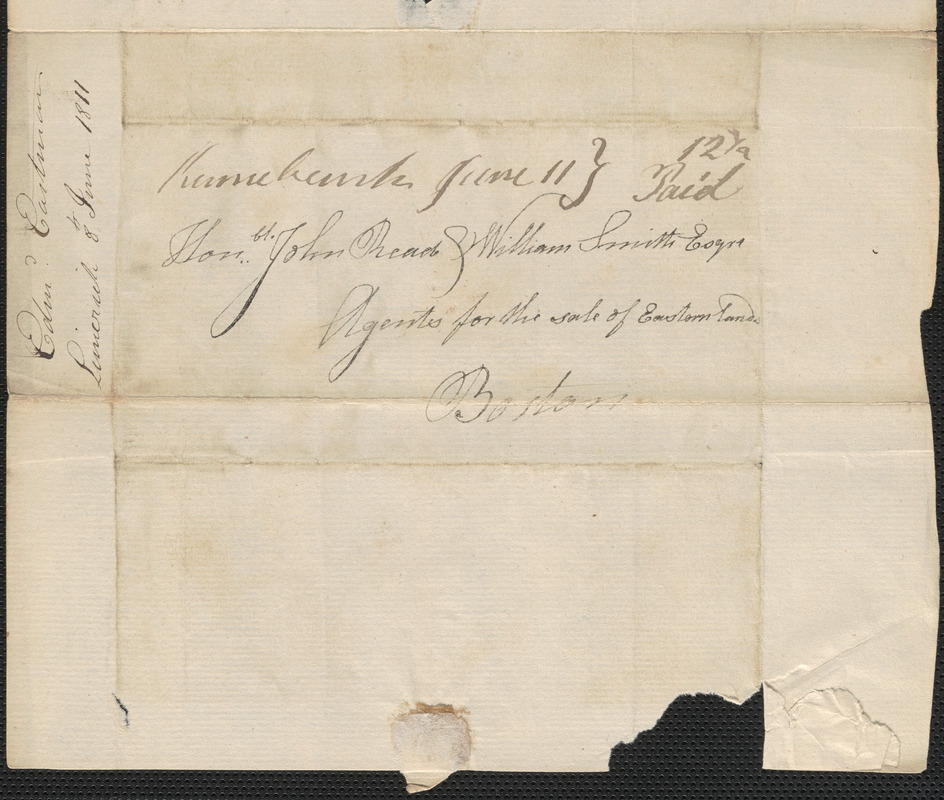 Kennebunk June 11 } 12½
Paid
Honbl. John Read & William Smith Esqrs
Agents for the sale of Eastern Lands
Boston
Edmd Eastman
Limerick 8th June 1811